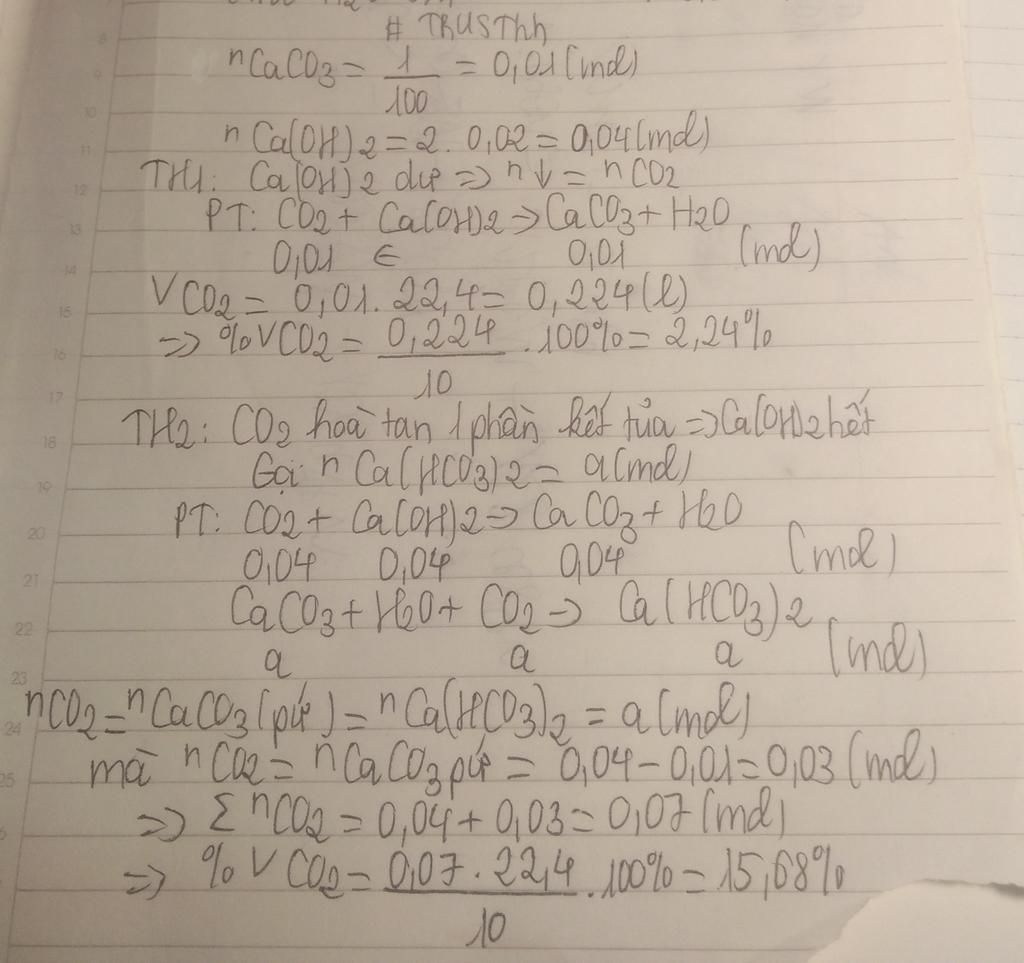 # TRUSThh
nCaCO3 = 1/100 = 0,01 (mol)
nCa(OH)2 = 2. 0,02 = 0,04 (mol)
TH1: Ca(OH)2 dư => n↓ = nCO2
PT: CO2 + Ca(OH)2 → CaCO3 + H2O
0,01 ← 0,01 (mol)
VCO2 = 0,01. 22,4 = 0,224 (l)
=> %VCO2 = 0,224/10 . 100% = 2,24%
TH2: CO2 hoà tan 1 phần kết tủa => Ca(OH)2 hết
Gọi nCa(HCO3)2 = a (mol)
PT: CO2 + Ca(OH)2 → CaCO3 + H2O
0,04 0,04 0,04 (mol)
CaCO3 + H2O + CO2 → Ca(HCO3)2
a a a (mol)
nCO2 = nCaCO3 (pứ) = nCa(HCO3)2 = a (mol)
mà nCO2 = nCaCO3 pứ = 0,04 - 0,01 = 0,03 (mol)
=> Σ nCO2 = 0,04 + 0,03 = 0,07 (mol)
=> % VCO2 = 0,07 . 22,4/10 . 100% = 15,68%